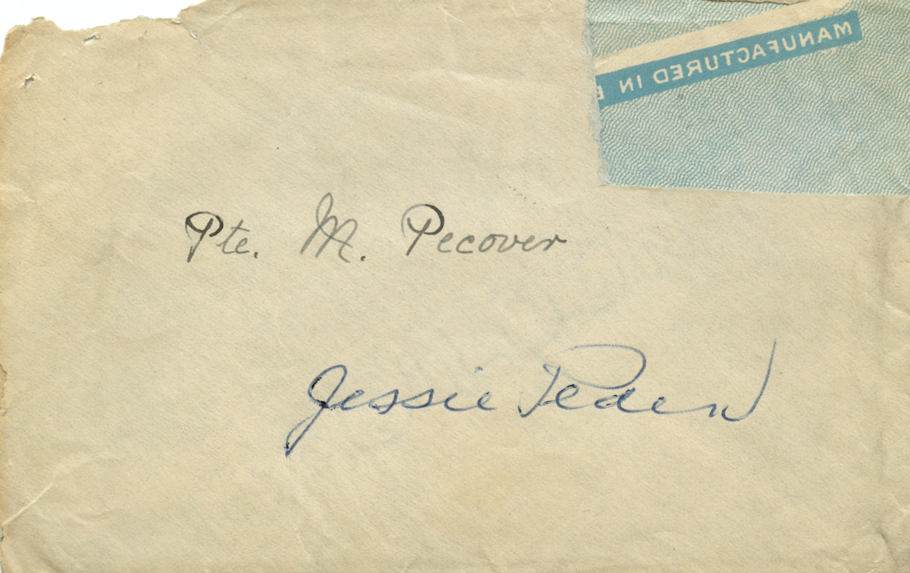 MANUFACTURED IN
Pte. M. Pecover
Jessie Peden